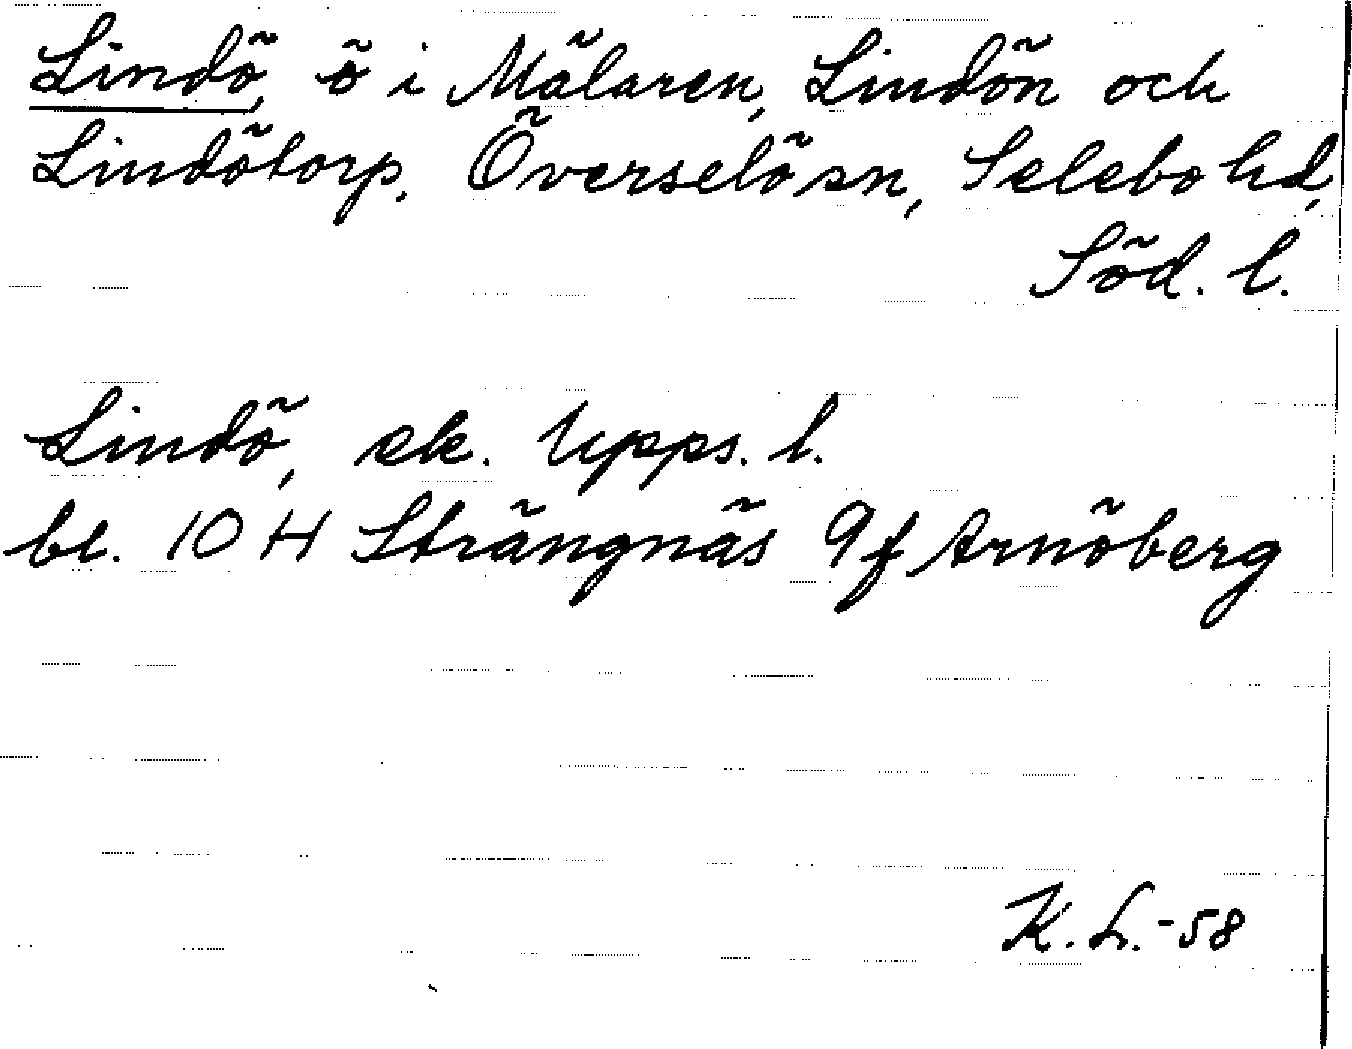 Lindö, ö i Mälaren, Lindön och
Lindötorp. Överselö sn, Selebo hd,
Söd. l.
Lindö, ek. Upps. l.
bl. 10 H Strängnäs 9f Arnöberg
K. L. -58